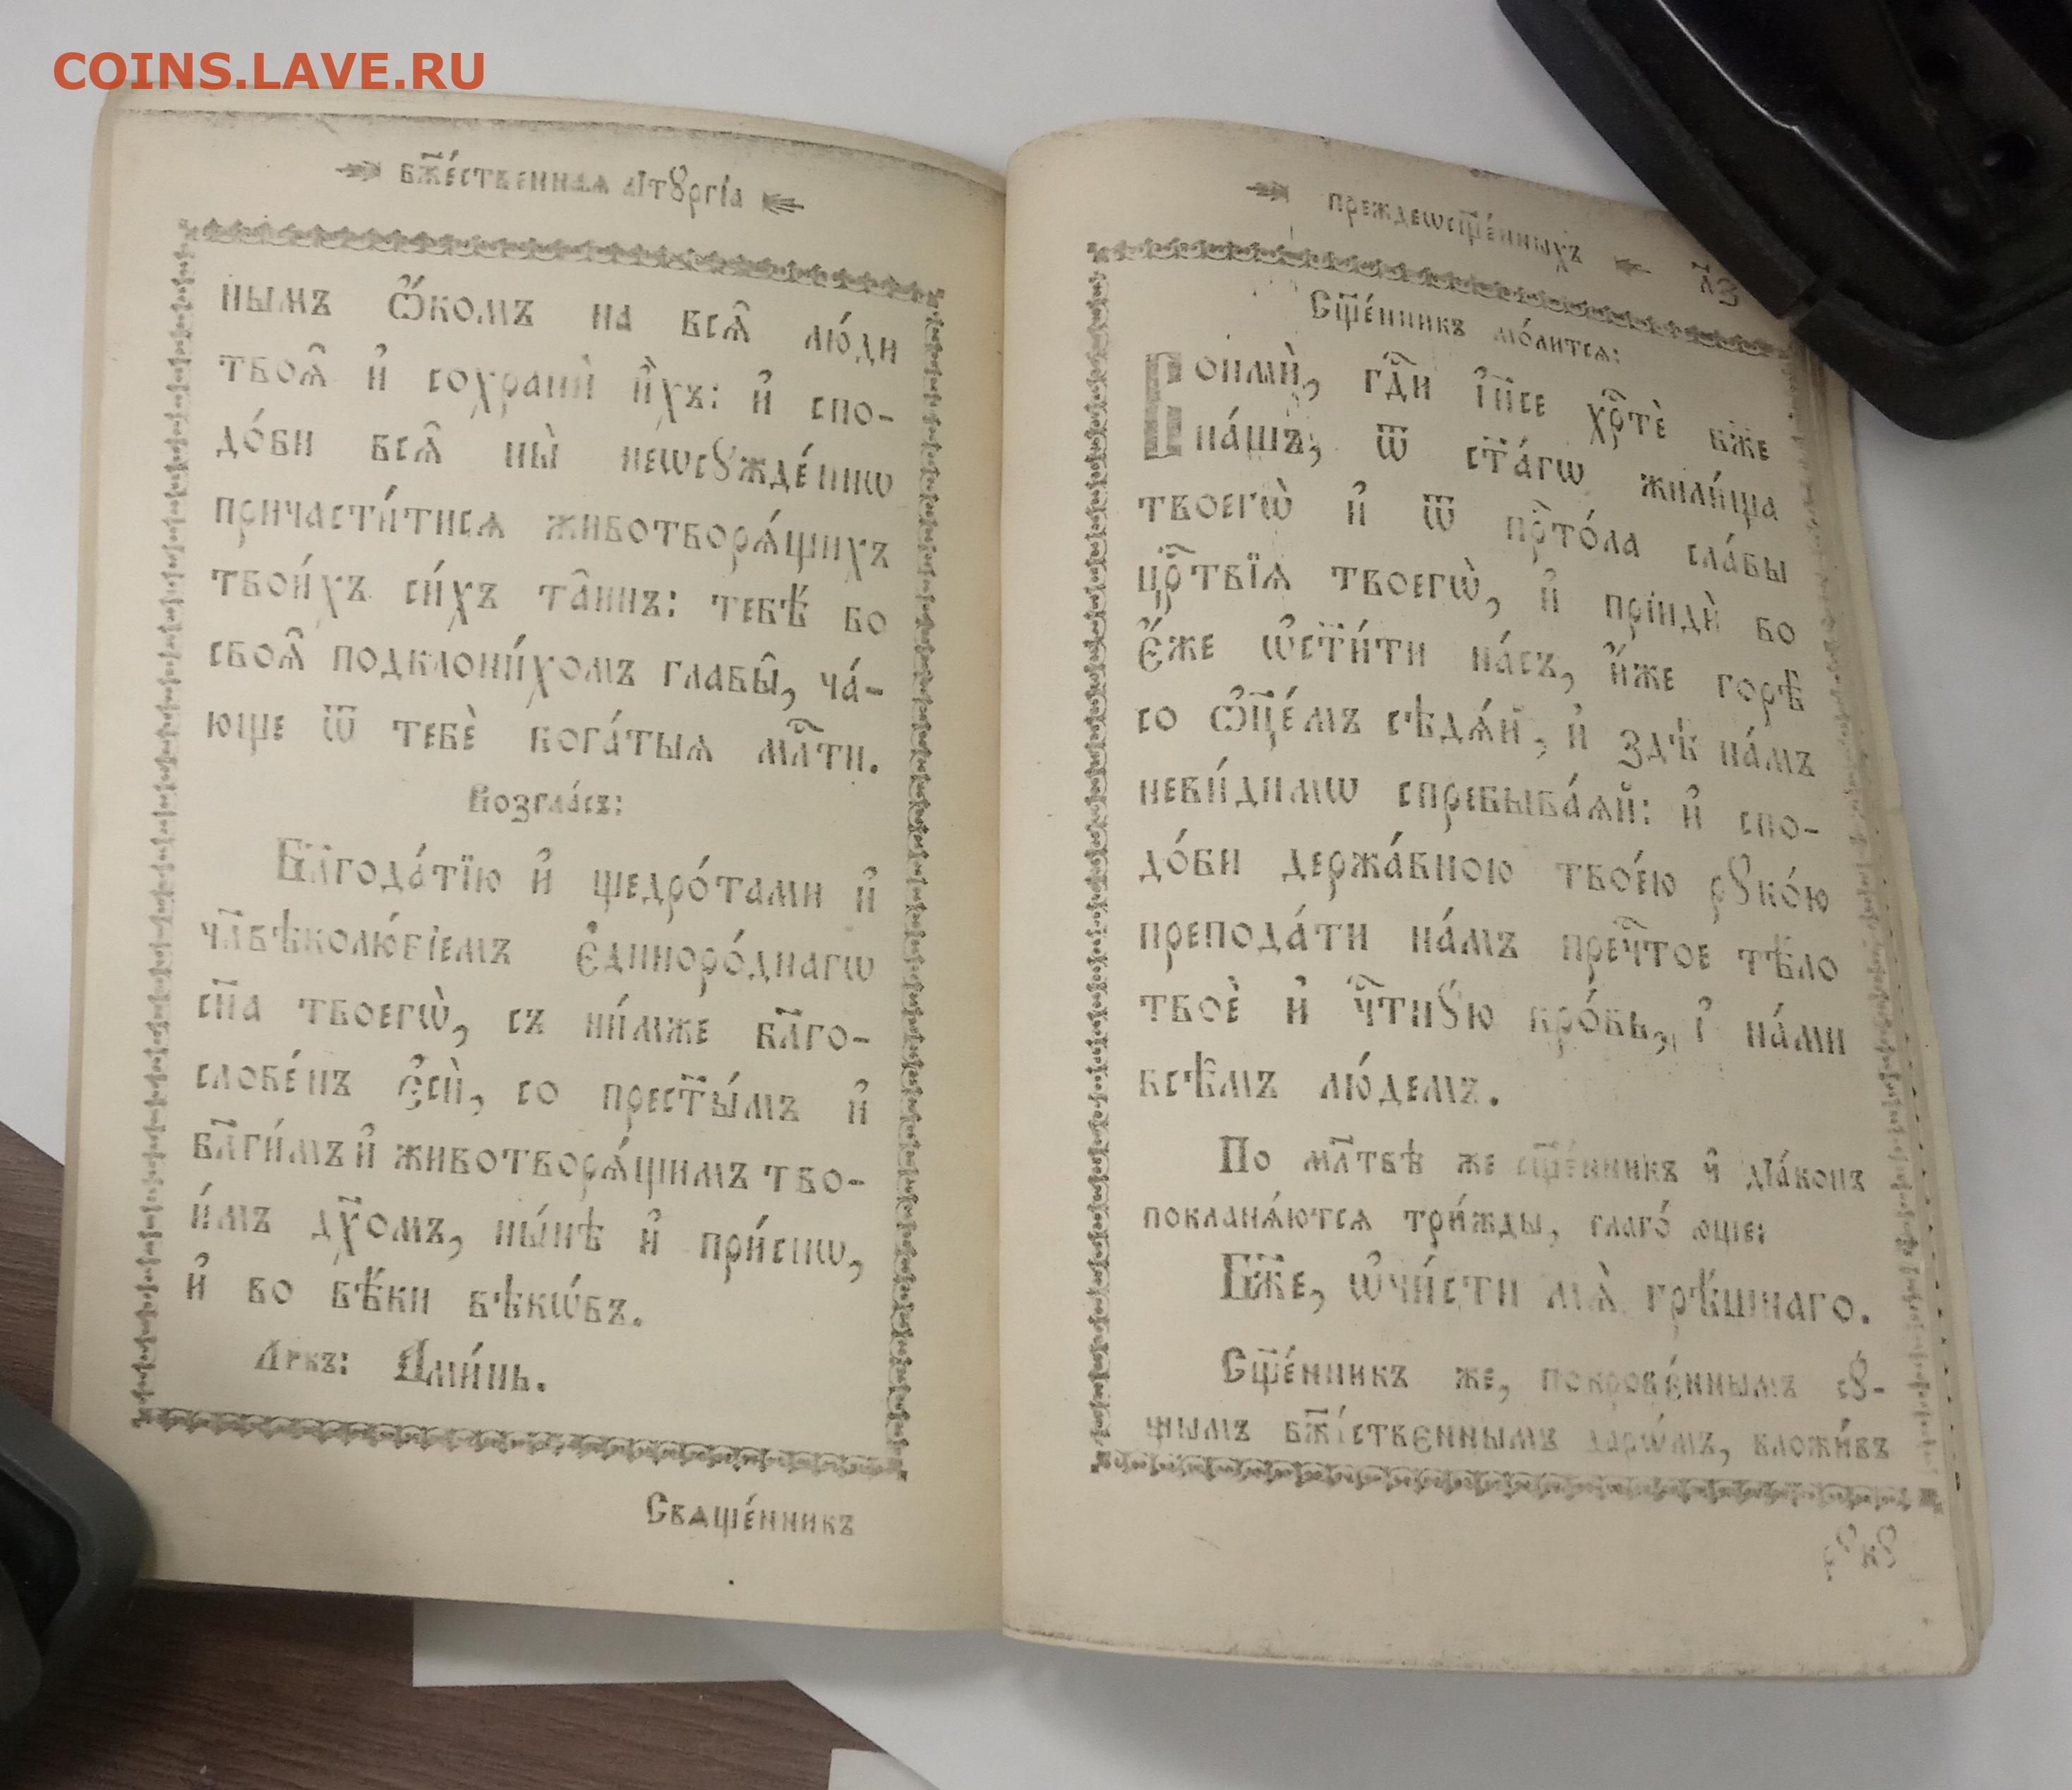 COINS.LAVE.RU
бж҃е́ственнаѧ лїтꙋргі́а
нымъ ѻ҆́комъ на всѧ̑ лю́ди
твоѧ̑ и҆ сохранѝ и҆̀хъ: и҆ спо-
до́би всѧ̑ ны̀ неѡсꙋжде́ннѡ
причасти́тисѧ животворѧ́щихъ
твои́хъ си́хъ та̑инъ: тебѣ́ бо
своѧ̑ подклони́хомъ главы̑, ча́-
юще ѿ тебє̀ бога́тыѧ мл҃ти.
Возгла́съ:
Бл҃года́тїю и҆ щедро́тами и҆
чл҃вѣколю́бїемъ є҆диноро́днагѡ
сн҃а твоегѡ̀, съ ни́мже бл҃го-
слове́нъ є҆сѝ, со прест҃ы́мъ и҆
бл҃ги́мъ и҆ животворѧ́щимъ тво-
и́мъ дх҃омъ, ны́нѣ и҆ при́снѡ,
и҆ во вѣ́ки вѣкѡ́въ.
Ликъ: А҆ми́нь.
Свѧще́нникъ
преждеѡсщ҃е́нныхъ
л҃з
Сщ҃е́нникъ мо́литсѧ:
Вонмѝ, гдⷭ҇и і҆и҃се хрⷭ҇тѐ бж҃е
на́шъ, ѿ ст҃а́гѡ жили́ща
твоегѡ̀ и҆ ѿ прⷭ҇то́ла сла́вы
црⷭ҇твїѧ твоегѡ̀, и҆ прїидѝ во
є҆́же ѡ҆ст҃и́ти на́съ, и҆́же горѣ̀
со ѻ҆ц҃е́мъ сѣдѧ́й, и҆ здѣ̀ на́мъ
неви́димѡ спребыва́ѧй: и҆ спо-
до́би держа́вною твое́ю рꙋко́ю
препода́ти на́мъ пречⷭ҇тое тѣ́ло
твоѐ и҆ чⷭ҇тнꙋ́ю кро́вь, і҆ на́ми
всѣ̑мъ лю́демъ.
По мл҃твѣ же сщ҃е́нникъ и҆ дїа́конъ
покланѧ́ютсѧ три́жды, глаго́люще:
Бж҃е, ѡ҆чи́сти мѧ̀ грѣ́шнаго.
Сщ҃е́нникъ же, покрове́ннымъ сꙋ́-
щымъ бж҃е́ственнымъ дарѡ́мъ, вложи́въ
рꙋкꙋ